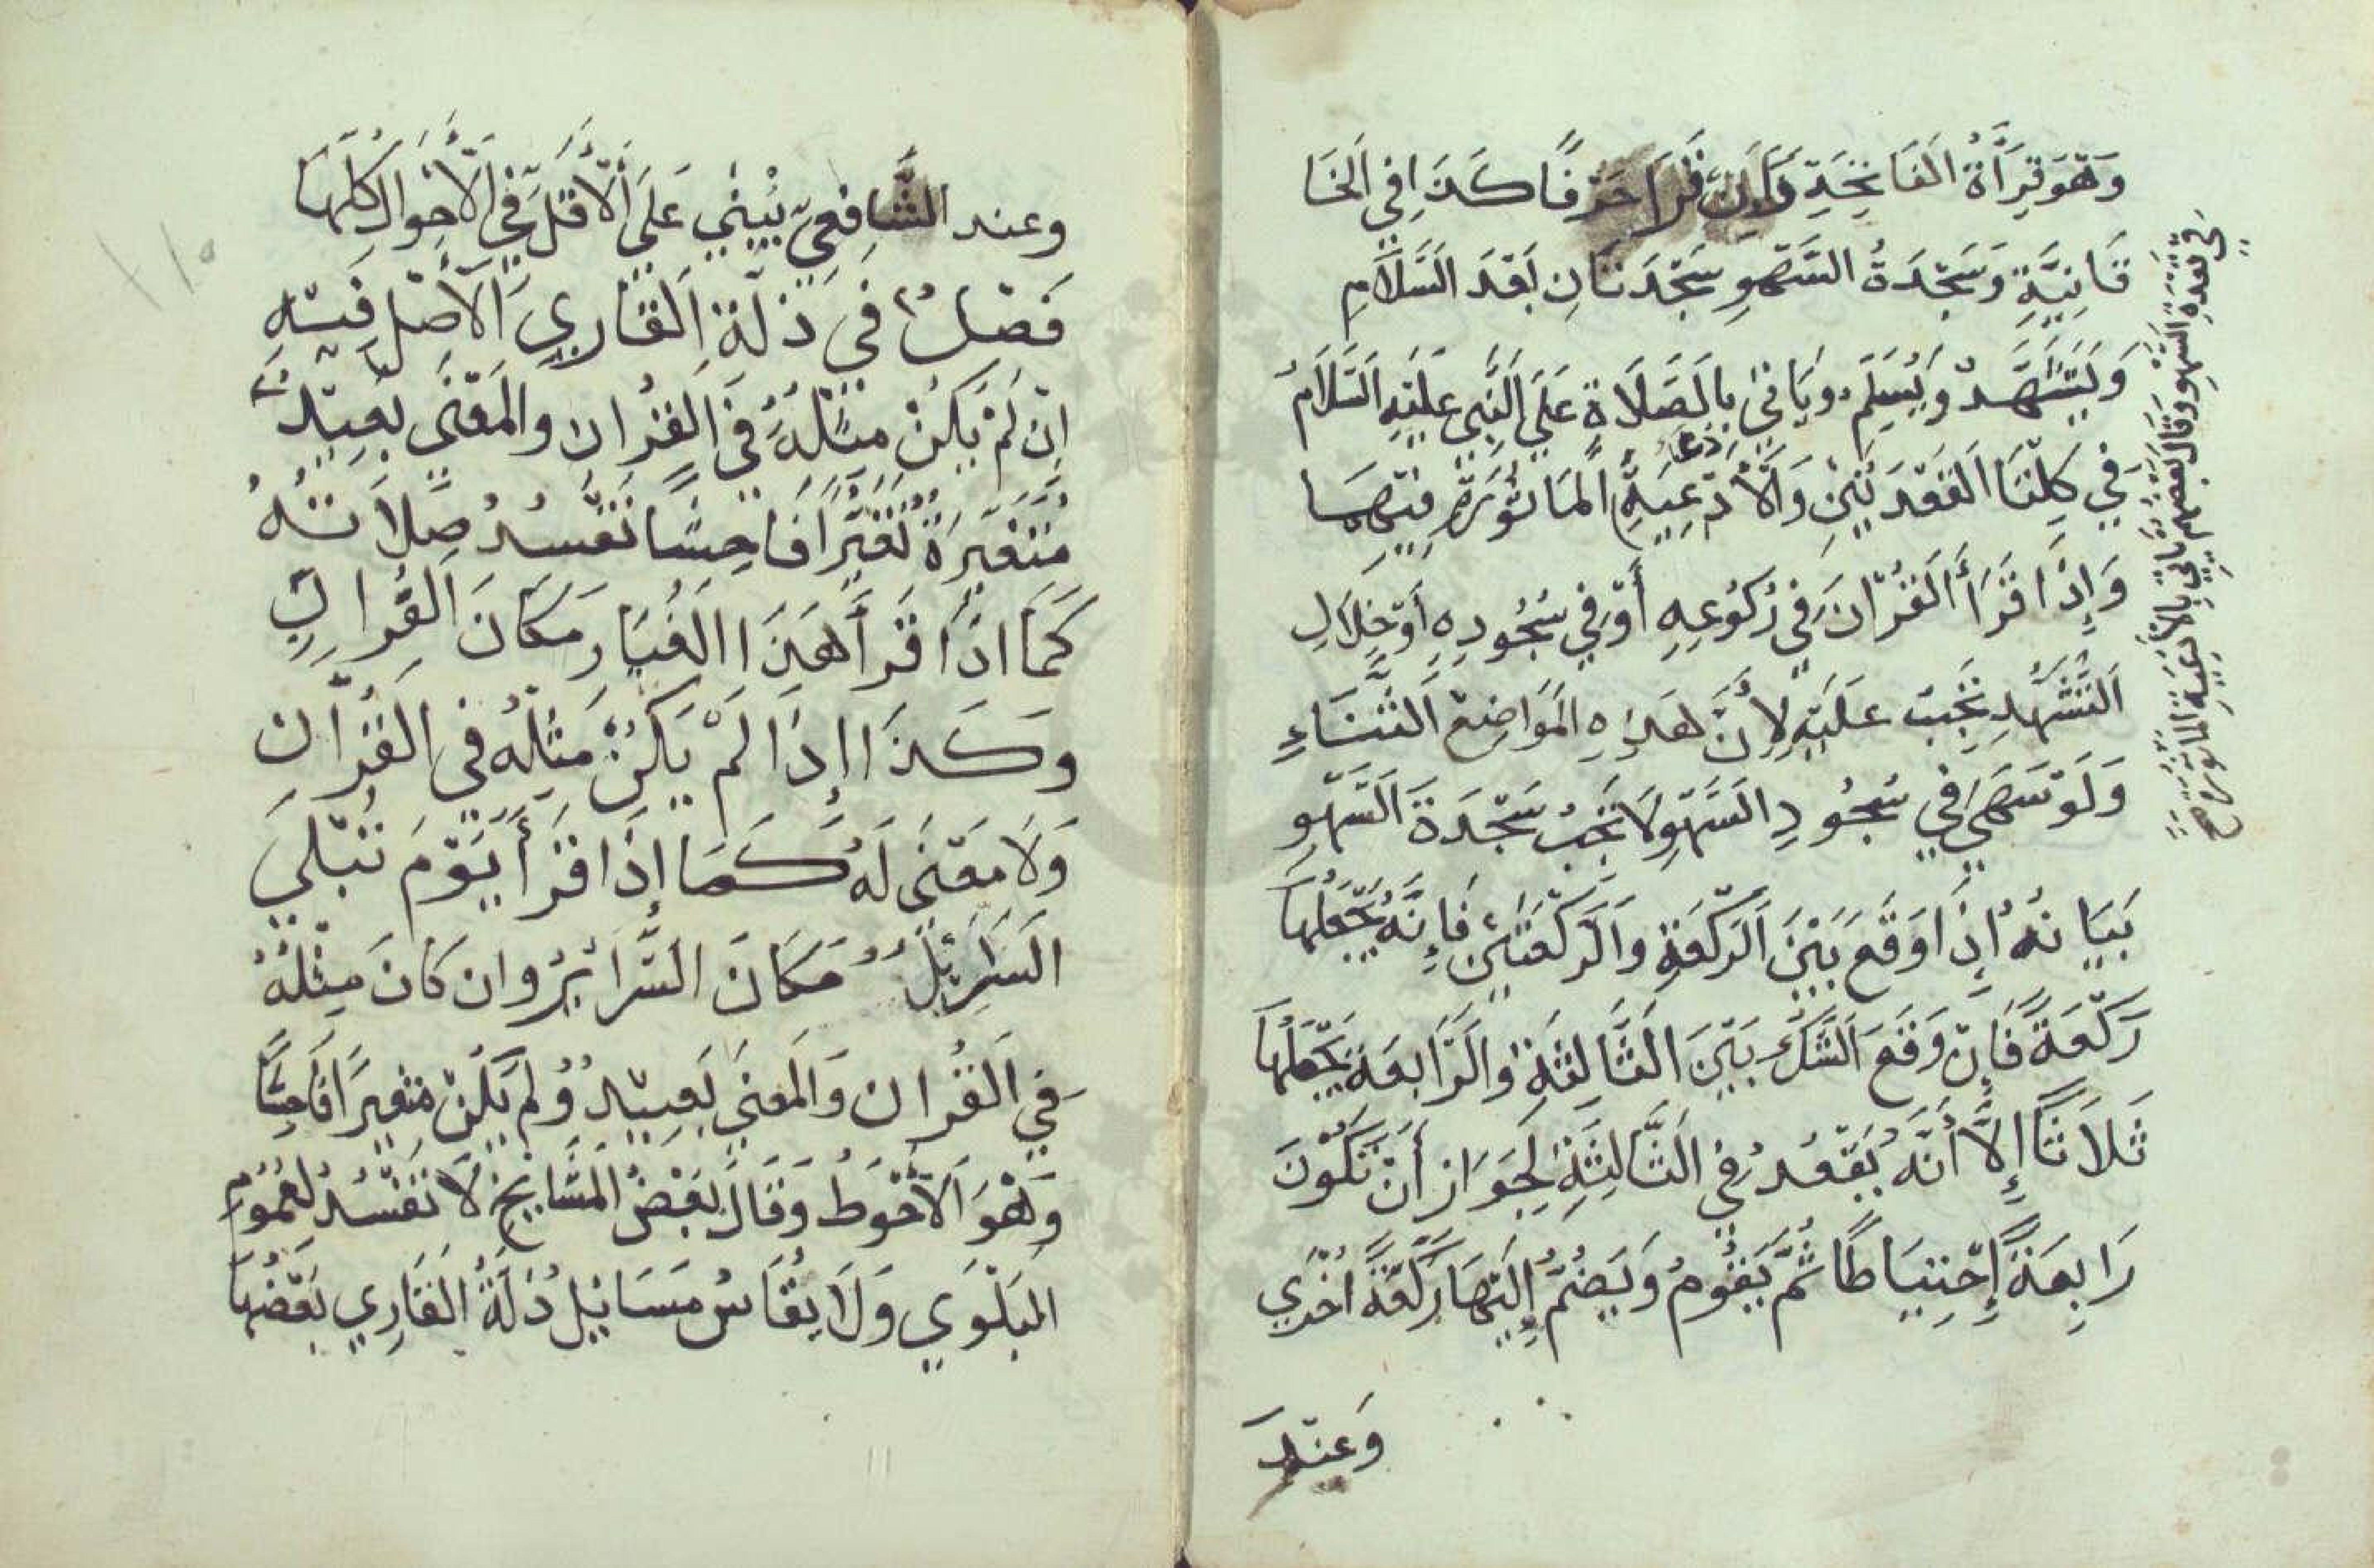 وَهُوَ قِرَأَةُ الْفَاتِحَةِ وَاِنْ قَرَاَ حَرْفًا كَذَا فِي الْخَا
قَانِيَّةِ وَسَجْدَةُ السَّهْوِ سَجْدَتَانِ بَعْدَ السَّلَامِ
وَيَتَشَهَّدُ وَيُسَلِّمُ وَيَأتِي بِالصَّلَاةِ عَلَي النَّبِي عَلَيْهِ السَّلَامُ
فِي كِلْتَا الْقَعْدَتَيْنِ وَالْأَدْعِيَةِ الْمَاثُورَةِ فِيْهِمَا
وَإِذَا قَرَأَ الْقُرْانَ فِي رُكُوعِهِ أَوْ فِي سُجُودِهِ أَوْ خِلَالِ
التَّشَهُّدِ تَجِبُ عَلَيْهِ لِأَنَّ هَذِهِ الْمَوَاضِعْ الثَّنَاءِ
وَلَوْ سَهَي فِي سُجُودِ السَّهْوِ لَا تَجِبُ سَجْدَةَ السَّهْوِ
بَيَانُهُ اِذَا وَقَعَ بَيْنَ الرَّكْعَةِ وَالرَّكْعَتَيْنِ فَإِنَّهُ يَجْعَلُهَا
رَكْعَةً فَاِنْ وَقَعَ الشَّكُّ بَيْنَ الثَّالِثَةِ وَالرَّابِعَةِ يَجْعَلُهَا
ثَلَاثًا إِلَّا أَنَّهُ يَقْعُدُ فِي الثَّالِثَةِ لِجَوَازِ أَنْ تَكُونَ
رَابِعَةً إِحْتِيَاطًا ثُمَّ يَقُومُ وَيَضُمُّ إِلَيْهَا رَكْعَةً اُخْرَي
وَعِنْدَ
فِي قَعْدَةِ السَّهْوِ وَقَالَ بَعْضُهُمْ يَأْتِي بِالْأَدْعِيَةِ الْمَأْثُورَةِ صح
وعند الشَّافِعِيِّ يَبْنِي عَلَى الْأَقَلِّ فِي الْأَحْوَالِ كُلِّهَا
فَصْلٌ فِي ذَلَّةِ الْقَارِي اَلْاَصْلُ فِيْهِ
اِنْ لَمْ يَكُنْ مِثْلُهُ فِي الْقُرْانِ وَالْمَعْنَى بَعِيْدٌ
مُتَغَيِّرَةٌ تَغَيُّرًا فَاحِشًا تَفْسُدُ صَلَاتُهُ
كَمَا اِذَا قَرَأَ هَذَا الْغُبَارِ مَكَانَ الْغُرَابِ
وَكَذَا إِذَا لَمْ يَكُنْ مِثْلُهُ فِي الْقُرْاٰنِ
وَلَا مَعْنَى لَهُ كَمَا إِذَا قَرَأَ يَوْمَ تُبْلَي
السَّرَايِلُ مَكَانَ السَّرَائِرُ وان كَانَ مِثْلُهُ
فِي الْقُرْانِ وَالْمَعْنَي بَعِيْدٌ وَلَمْ يَكُنْ مُتَغَيِّرًا فَاحِشًا
وَهُوَ الْاَحْوَطُ وَقَالَ بَعْضُ الْمَشَايِخِ لَا تَفْسُدُ لِعُمُومِ
الْبَلْوَي وَلَا يُقَاسُ مَسَايِلُ ذَلَّةُ الْقَارِي بَعْضُهَا